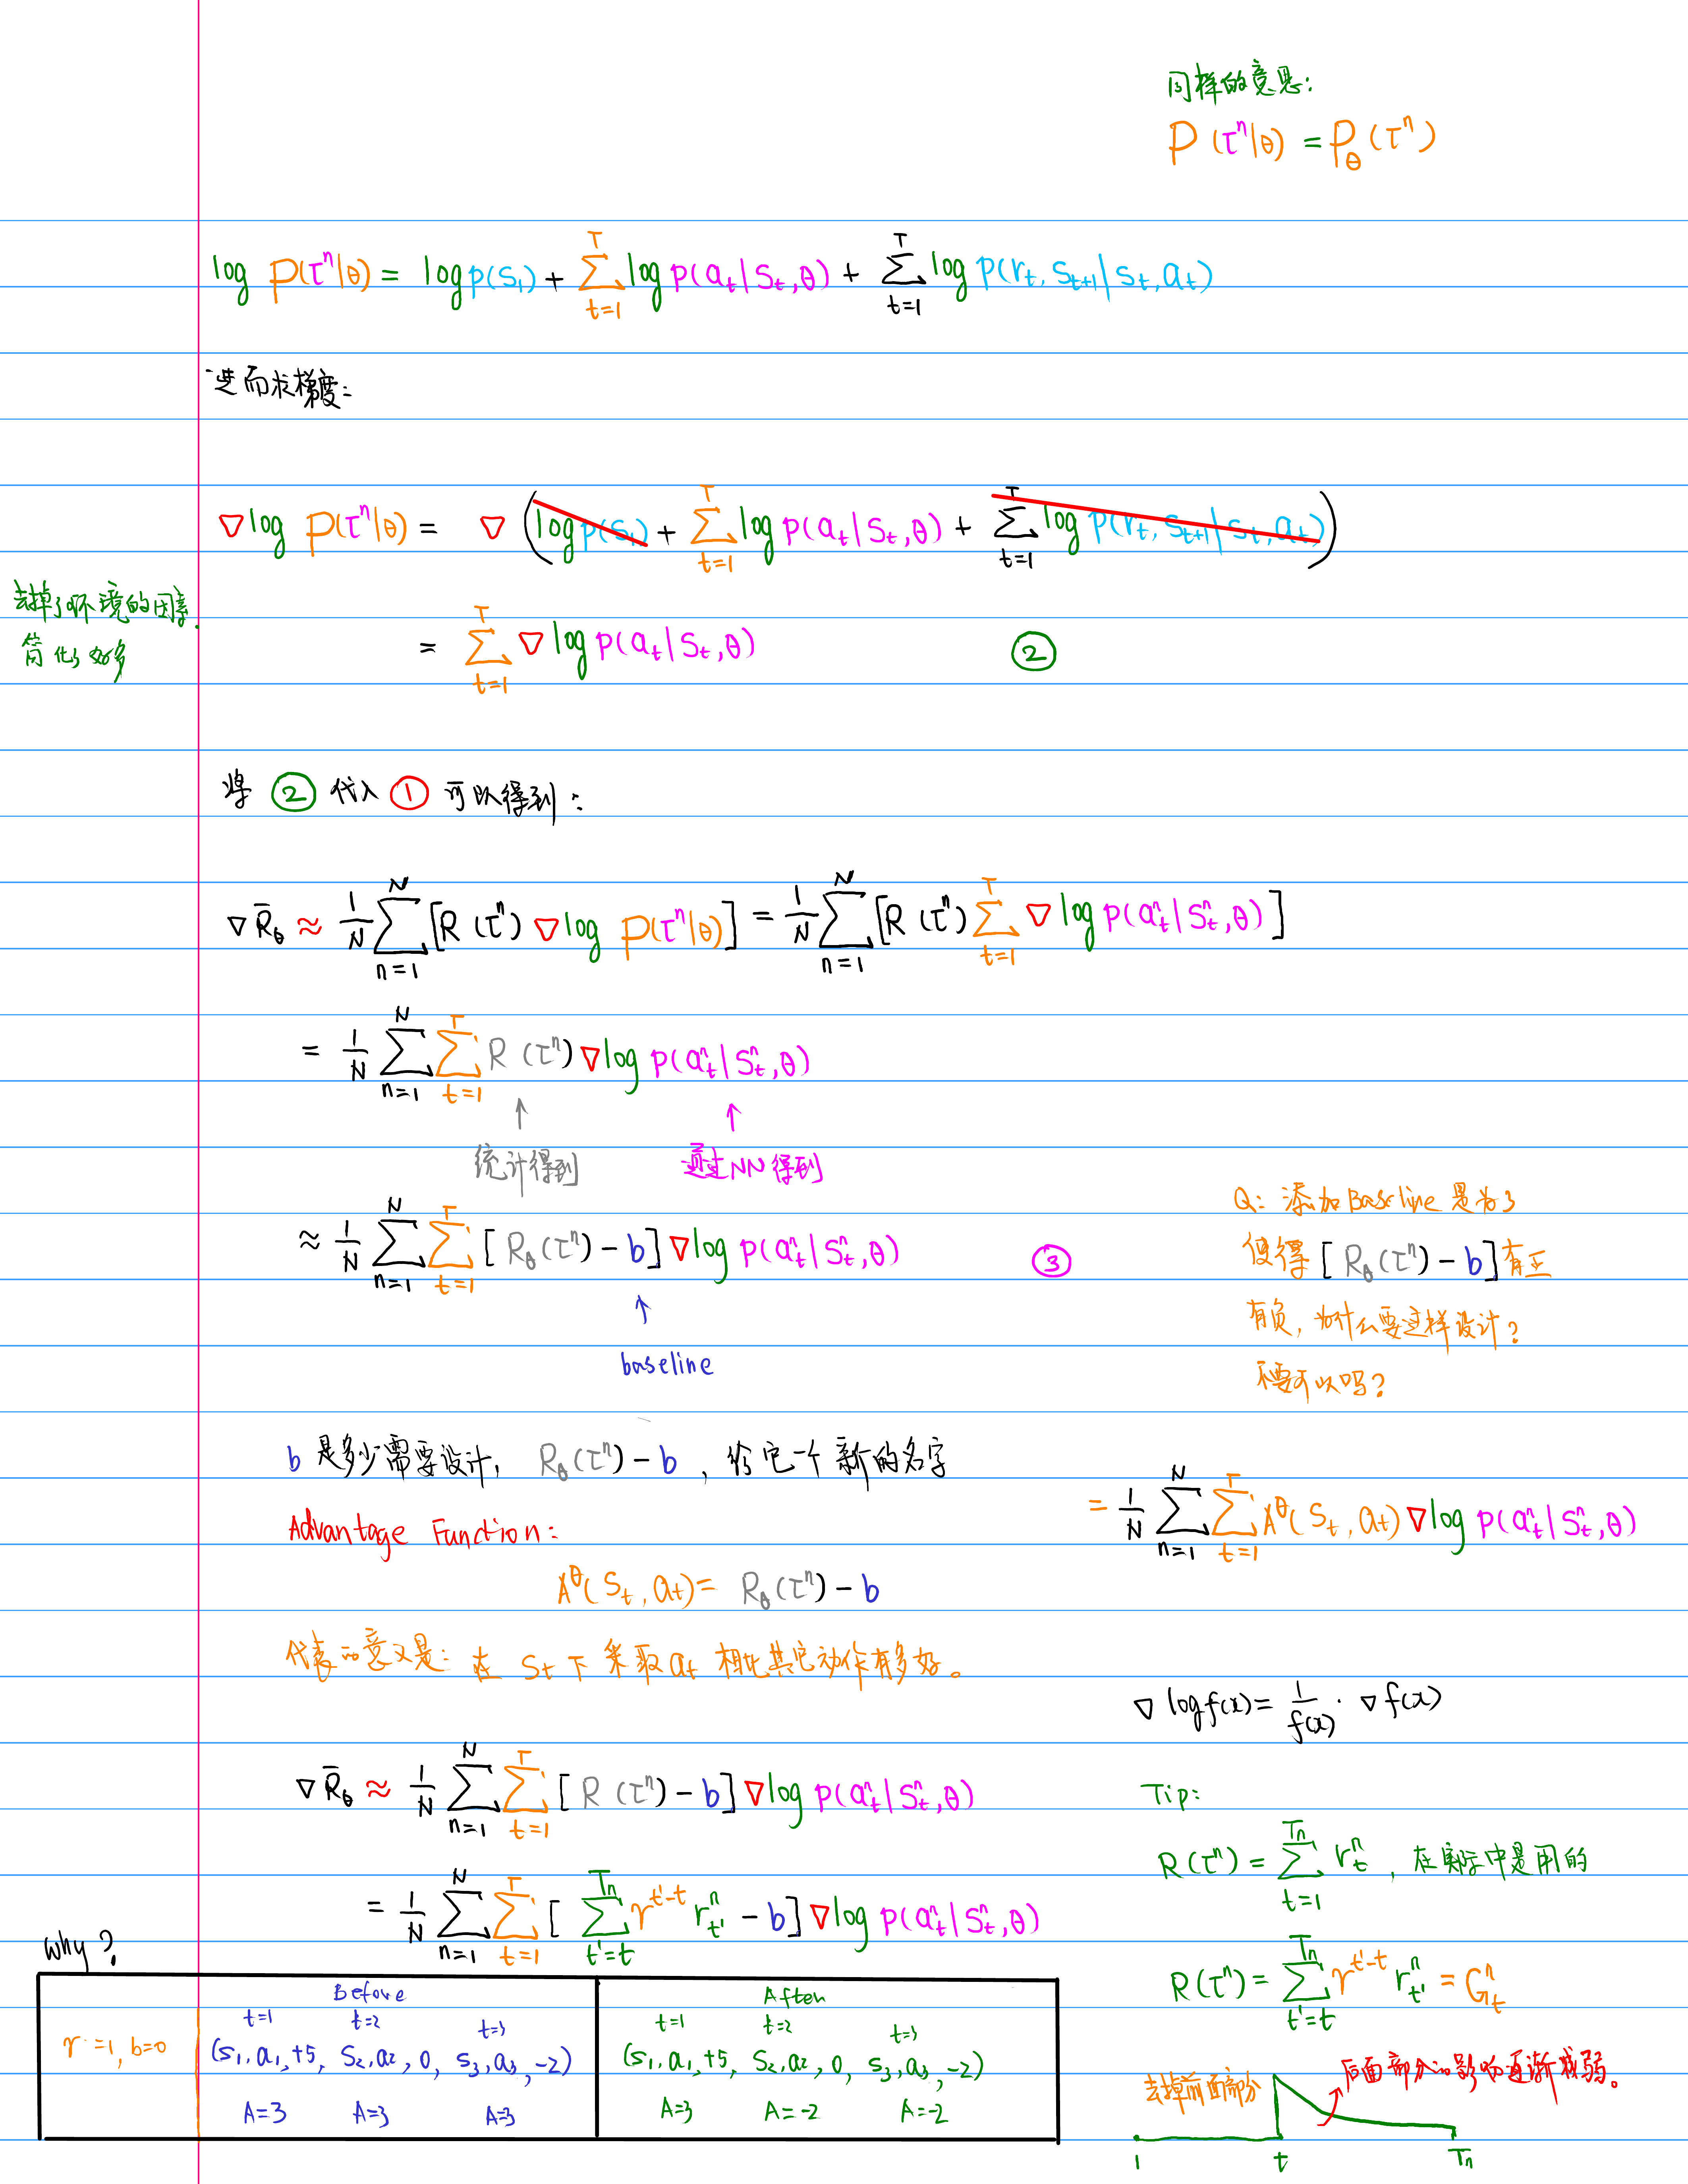 同样的意思:
P(τⁿ|θ) = P_θ(τⁿ)
log P(τⁿ|θ) = log p(s₁) + Σ_{t=1}^{T} log p(a_t|s_t,θ) + Σ_{t=1}^{T} log p(r_t, s_{t+1}|s_t,a_t)
进而求梯度:
∇log P(τⁿ|θ) = ∇(log p(s₁) + Σ_{t=1}^{T} log p(a_t|s_t,θ) + Σ_{t=1}^{T} log p(r_t, s_{t+1}|s_t,a_t))
去掉了环境的因素.
简化了好多
= Σ_{t=1}^{T} ∇log p(a_t|s_t,θ) ②
将 ② 代入 ① 可以得到:
∇R̄_θ ≈ 1/N Σ_{n=1}^{N} [R(τⁿ) ∇log P(τⁿ|θ)] = 1/N Σ_{n=1}^{N} [R(τⁿ) Σ_{t=1}^{T} ∇log p(a_tⁿ|s_tⁿ,θ)]
= 1/N Σ_{n=1}^{N} Σ_{t=1}^{T} R(τⁿ) ∇log p(a_tⁿ|s_tⁿ,θ)
↑ ↑
统计得到 通过NN得到
≈ 1/N Σ_{n=1}^{N} Σ_{t=1}^{T} [R_θ(τⁿ) − b] ∇log p(a_tⁿ|s_tⁿ,θ) ③
↑
baseline
Q: 添加Baseline是为了
使得 [R_θ(τⁿ) − b] 有正
有负, 为什么要这样设计?
不要可以吗?
b 是多少需要设计, R_θ(τⁿ) − b, 给它一个新的名字
Advantage Function:
= 1/N Σ_{n=1}^{N} Σ_{t=1}^{T} A^θ(s_t,a_t) ∇log p(a_tⁿ|s_tⁿ,θ)
A^θ(s_t,a_t) = R_θ(τⁿ) − b
代表的意义是: 在 s_t 下采取 a_t 相比其它动作有多好。
∇log f(x) = 1/f(x) · ∇f(x)
∇R̄_θ ≈ 1/N Σ_{n=1}^{N} Σ_{t=1}^{T} [R(τⁿ) − b] ∇log p(a_tⁿ|s_tⁿ,θ)
= 1/N Σ_{n=1}^{N} Σ_{t=1}^{T} [Σ_{t'=t}^{T_n} γ^{t'-t} r_{t'}ⁿ − b] ∇log p(a_tⁿ|s_tⁿ,θ)
Tip:
R(τⁿ) = Σ_{t=1}^{T_n} r_tⁿ, 在实际中是用的
R(τⁿ) = Σ_{t'=t}^{T_n} γ^{t'-t} r_{t'}ⁿ = G_tⁿ
why?
γ=1, b=0
Before
t=1 t=2 t=3
(s₁,a₁,+5, s₂,a₂,0, s₃,a₃,−2)
A=3 A=3 A=3
After
t=1 t=2 t=3
(s₁,a₁,+5, s₂,a₂,0, s₃,a₃,−2)
A=3 A=−2 A=−2
去掉前面部分
后面部分的影响逐渐减弱。
1 t T_n